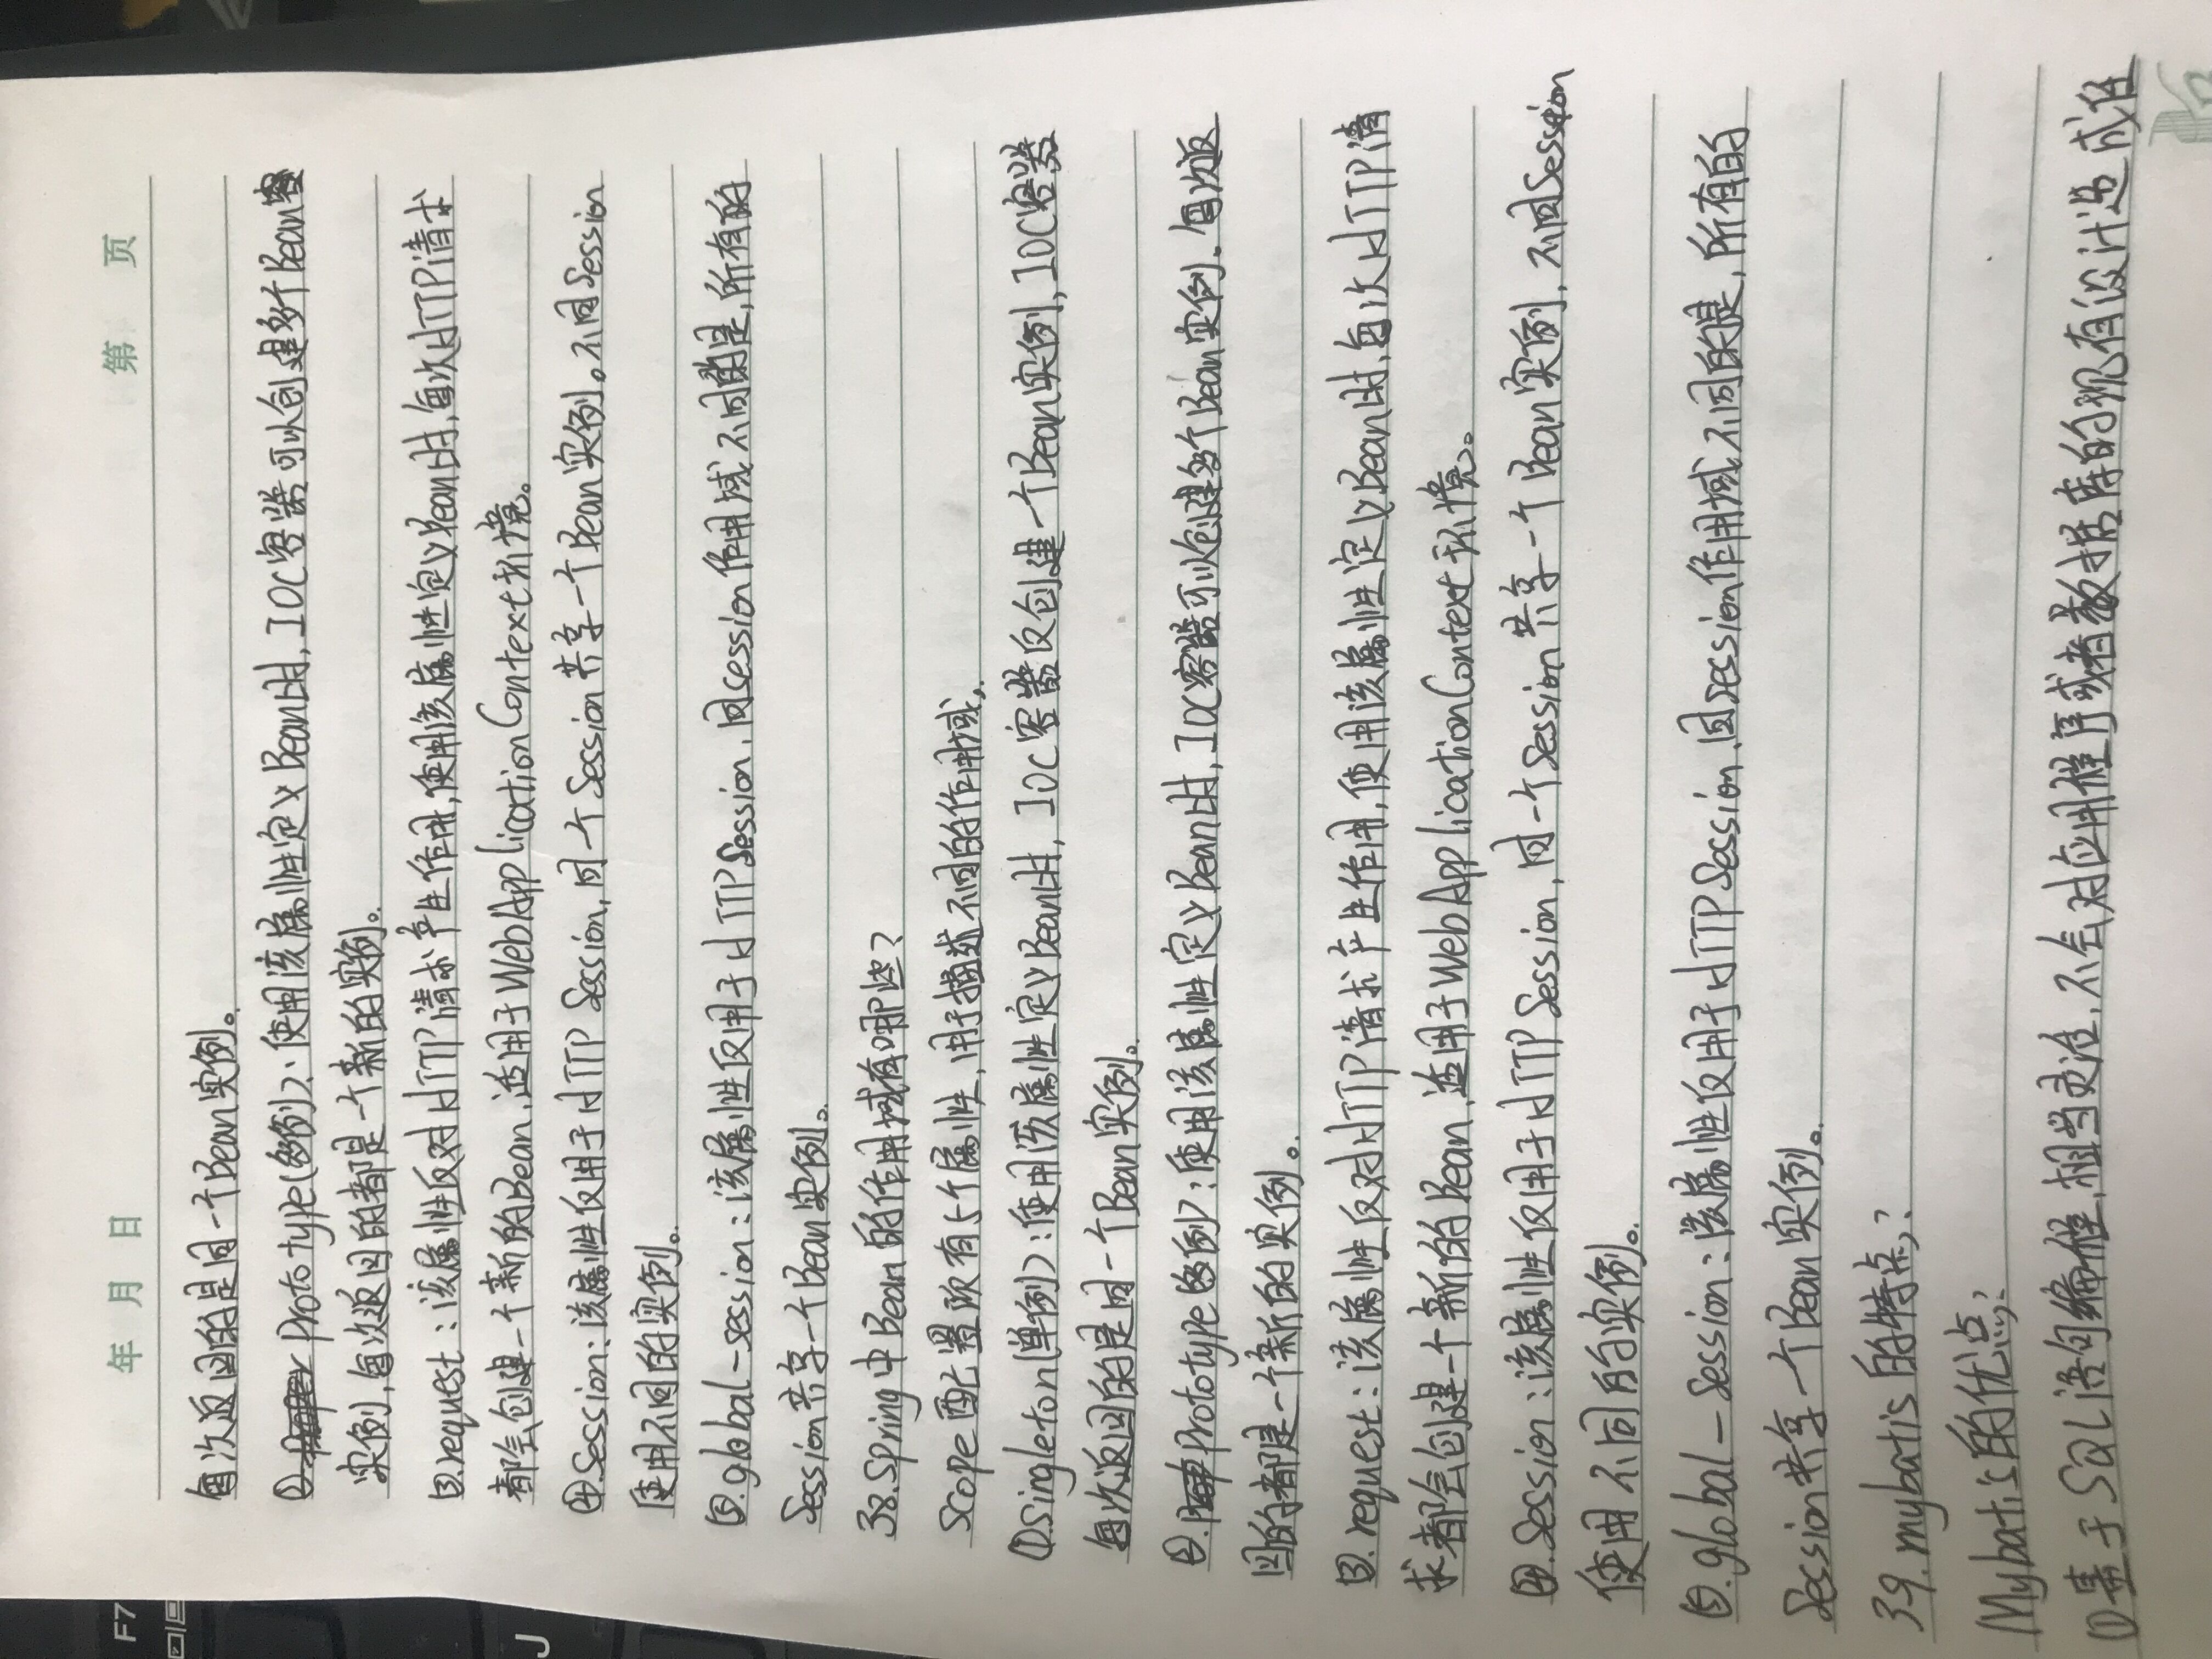 F7
J
年 月 日 第 页
每次返回的是同一个Bean实例。
②. Prototype(多例):使用该属性定义Bean时,IOC容器可以创建多个Bean
实例,每次返回的都是一个新的实例。
③.request:该属性仅对HTTP请求产生作用,使用该属性定义Bean时,每次HTTP请求
都会创建一个新的Bean,适用于WebApplicationContext环境。
④.Session:该属性仅用于HTTP Session,同一个Session共享一个Bean实例。不同Session
使用不同的实例。
⑤.global-session:该属性仅用于HTTPSession,同session作用域不同的是,所有的
Session共享一个Bean实例。
38.Spring中Bean的作用域有哪些?
Scope配置项有5个属性,用于描述不同的作用域。
①Singleton(单例):使用该属性定义Bean时,IOC容器仅创建一个Bean实例,IOC容器
每次返回的是同一个Bean实例。
②.Prototype(多例):使用该属性定义Bean时,IOC容器可以创建多个Bean实例。每次返
回的都是一个新的实例。
③.request:该属性仅对HTTP请求产生作用,使用该属性定义Bean时,每次HTTP请
求都会创建一个新的Bean,适用于WebApplicationContext环境。
④.Session:该属性仅用于HTTP Session,同一个Session共享一个Bean实例,不同Session
使用不同的实例。
⑤.global-Session:该属性仅用于HTTPSession,同session作用域不同的是,所有的
Session共享一个Bean实例。
39.mybatis的特点?
Mybatis的优点:
①基于SQL语句编程,相当灵活,不会对应用程序或者数据库的现有设计造成任